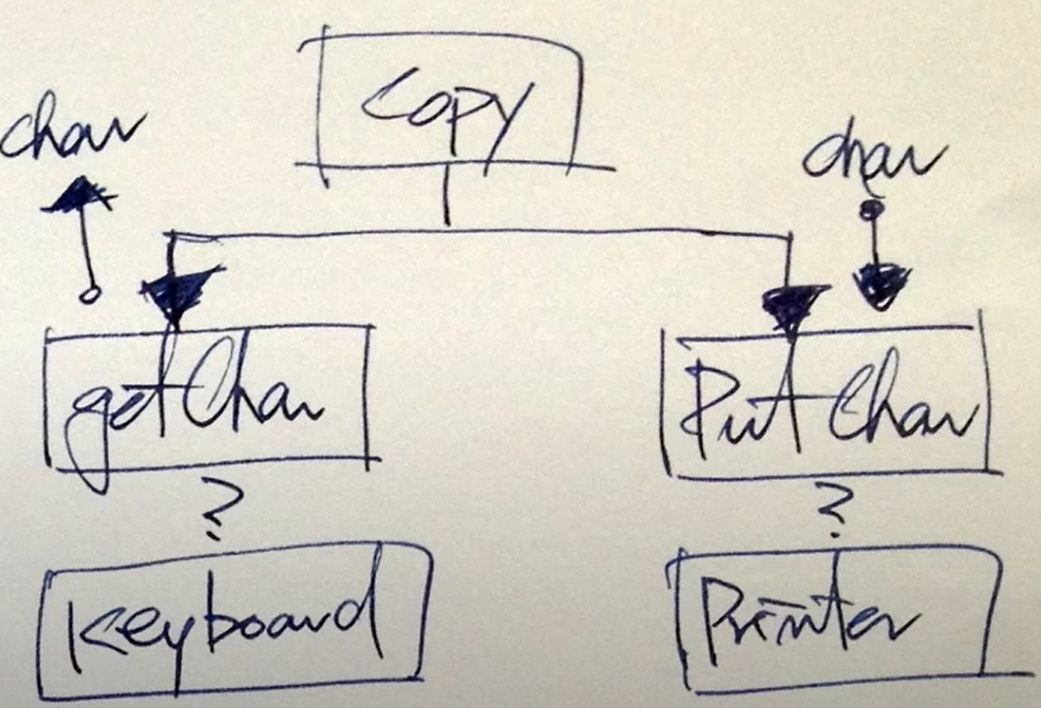 Copy
char
char
getChar
PutChar
?
?
Keyboard
Printer